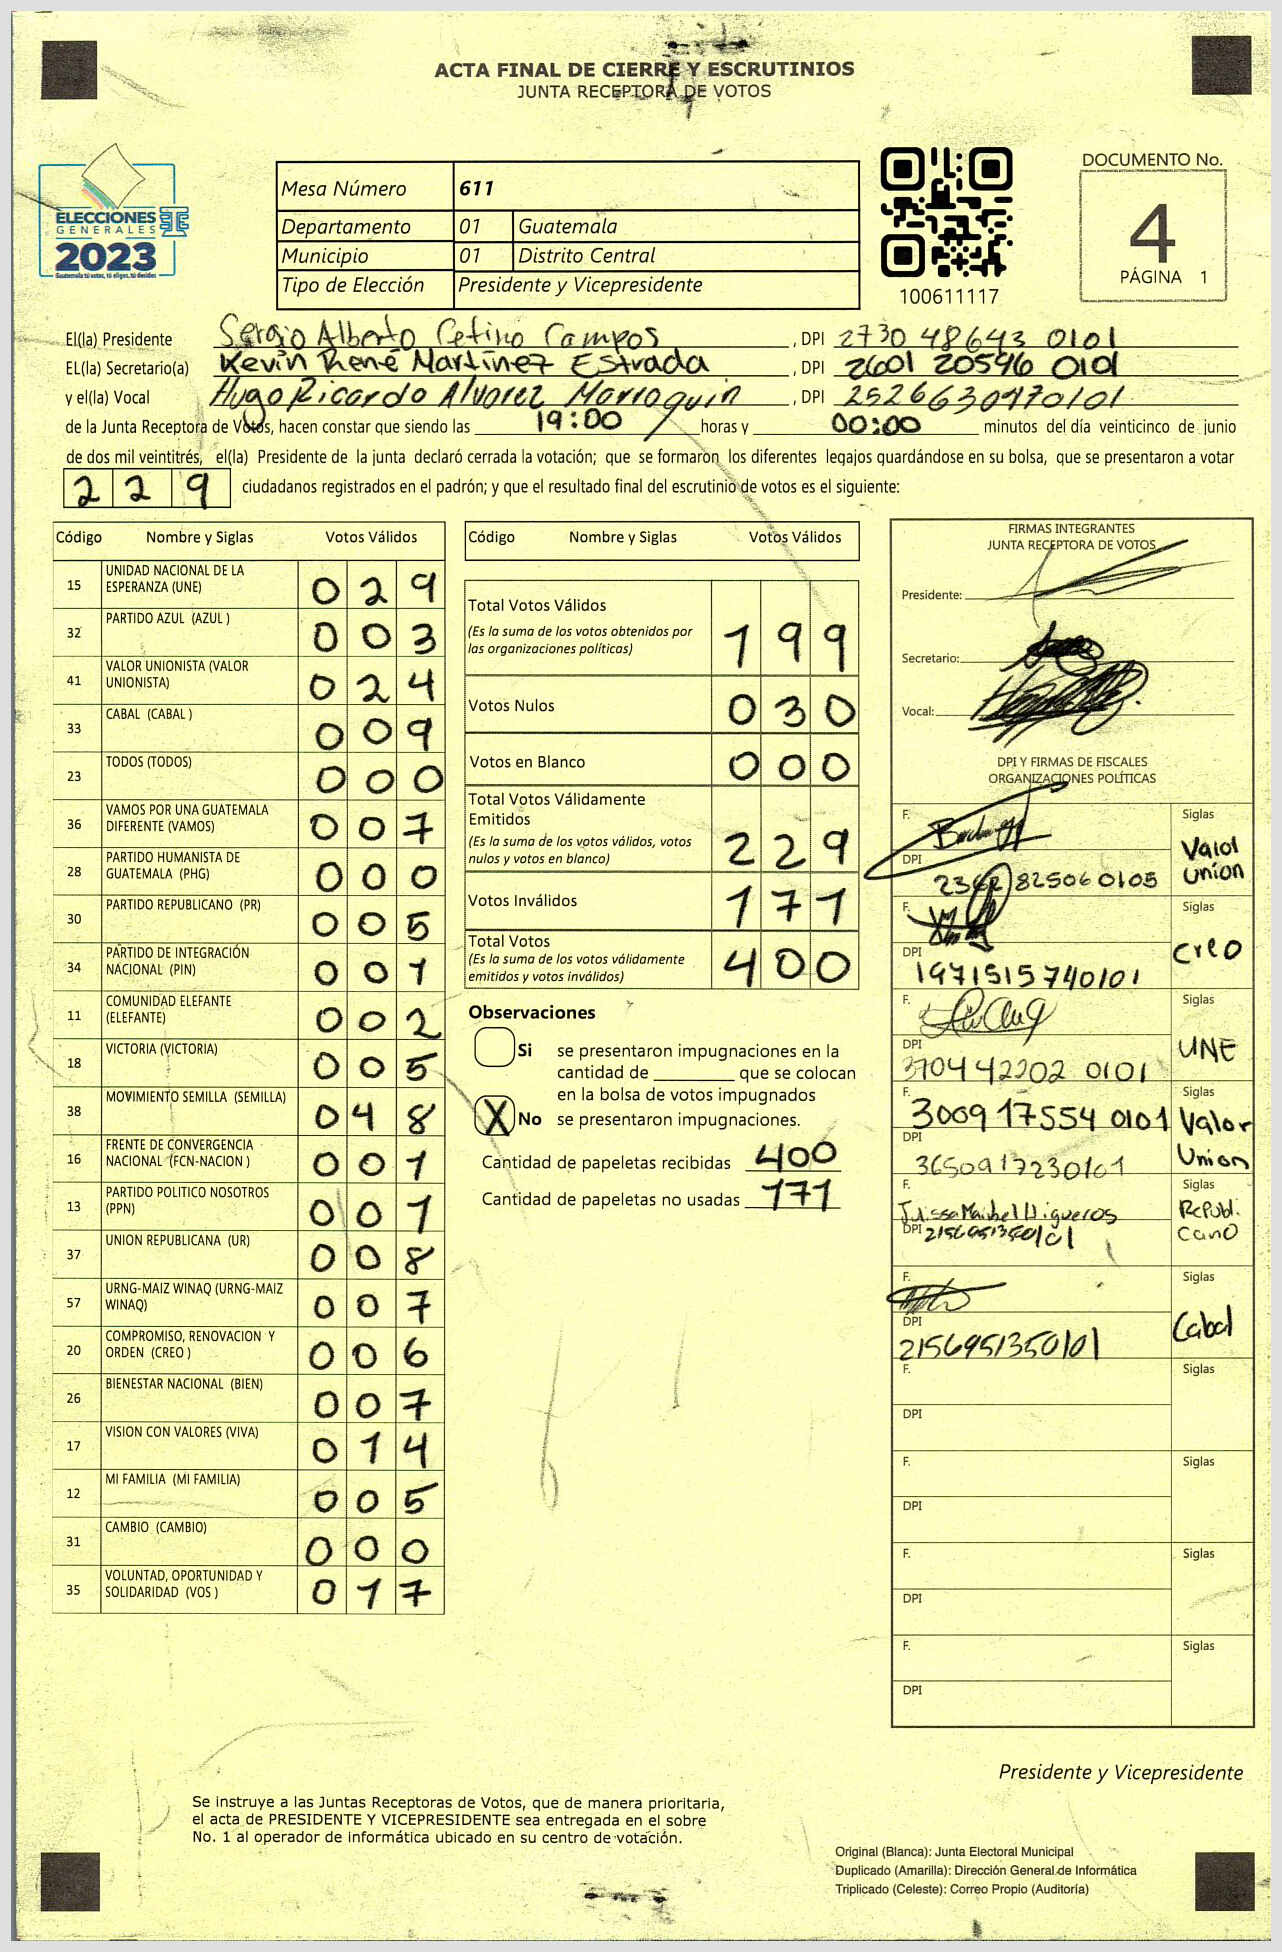 ACTA FINAL DE CIERRE Y ESCRUTINIOS
JUNTA RECEPTORA DE VOTOS
ELECCIONES
GENERALES
2023
Guatemala tú votas, tú eliges, tú decides
Mesa Número 611
Departamento 01 Guatemala
Municipio 01 Distrito Central
Tipo de Elección Presidente y Vicepresidente
100611117
DOCUMENTO No.
4
PÁGINA 1
El(la) Presidente Sergio Alberto Cetino Campos , DPI 2730 48643 0101
EL(la) Secretario(a) Kevin René Martínez Estrada , DPI 2601 20596 0101
y el(la) Vocal Hugo Ricardo Alvarez Marroquin , DPI 2526630970101
de la Junta Receptora de Votos, hacen constar que siendo las 19:00 horas y 00:00 minutos del día veinticinco de junio
de dos mil veintitrés, el(la) Presidente de la junta declaró cerrada la votación; que se formaron los diferentes legajos quardándose en su bolsa, que se presentaron a votar
229 ciudadanos registrados en el padrón; y que el resultado final del escrutinio de votos es el siguiente:
Código Nombre y Siglas Votos Válidos
15 UNIDAD NACIONAL DE LA ESPERANZA (UNE) 029
32 PARTIDO AZUL (AZUL ) 003
41 VALOR UNIONISTA (VALOR UNIONISTA) 024
33 CABAL (CABAL ) 009
23 TODOS (TODOS) 000
36 VAMOS POR UNA GUATEMALA DIFERENTE (VAMOS) 007
28 PARTIDO HUMANISTA DE GUATEMALA (PHG) 000
30 PARTIDO REPUBLICANO (PR) 005
34 PARTIDO DE INTEGRACIÓN NACIONAL (PIN) 001
11 COMUNIDAD ELEFANTE (ELEFANTE) 002
18 VICTORIA (VICTORIA) 005
38 MOVIMIENTO SEMILLA (SEMILLA) 048
16 FRENTE DE CONVERGENCIA NACIONAL (FCN-NACION ) 001
13 PARTIDO POLITICO NOSOTROS (PPN) 001
37 UNION REPUBLICANA (UR) 008
57 URNG-MAIZ WINAQ (URNG-MAIZ WINAQ) 007
20 COMPROMISO, RENOVACION Y ORDEN (CREO ) 006
26 BIENESTAR NACIONAL (BIEN) 007
17 VISION CON VALORES (VIVA) 014
12 MI FAMILIA (MI FAMILIA) 005
31 CAMBIO (CAMBIO) 000
35 VOLUNTAD, OPORTUNIDAD Y SOLIDARIDAD (VOS ) 017
Código Nombre y Siglas Votos Válidos
Total Votos Válidos
(Es la suma de los votos obtenidos por las organizaciones políticas) 199
Votos Nulos 030
Votos en Blanco 000
Total Votos Válidamente Emitidos
(Es la suma de los votos válidos, votos nulos y votos en blanco) 229
Votos Inválidos 171
Total Votos
(Es la suma de los votos válidamente emitidos y votos inválidos) 400
Observaciones
Si se presentaron impugnaciones en la
cantidad de ________ que se colocan
en la bolsa de votos impugnados
X No se presentaron impugnaciones.
Cantidad de papeletas recibidas 400
Cantidad de papeletas no usadas 171
FIRMAS INTEGRANTES
JUNTA RECEPTORA DE VOTOS
Presidente:
Secretario:
Vocal:
DPI Y FIRMAS DE FISCALES
ORGANIZACIONES POLÍTICAS
F. Siglas
Valor Union
DPI 2362 825060105
F. Siglas
Creo
DPI 1971515740101
F. Siglas
UNE
DPI 370442202 0101
F. 3009 17554 0101 Siglas
Valor Union
DPI 3650917230101
F. Siglas
Republicano
DPI 2156951350101
F. Siglas
Cabal
DPI 2156951350101
F. Siglas
DPI
F. Siglas
DPI
F. Siglas
DPI
F. Siglas
DPI
Presidente y Vicepresidente
Se instruye a las Juntas Receptoras de Votos, que de manera prioritaria,
el acta de PRESIDENTE Y VICEPRESIDENTE sea entregada en el sobre
No. 1 al operador de informática ubicado en su centro de votación.
Original (Blanca): Junta Electoral Municipal
Duplicado (Amarilla): Dirección General de Informática
Triplicado (Celeste): Correo Propio (Auditoría)